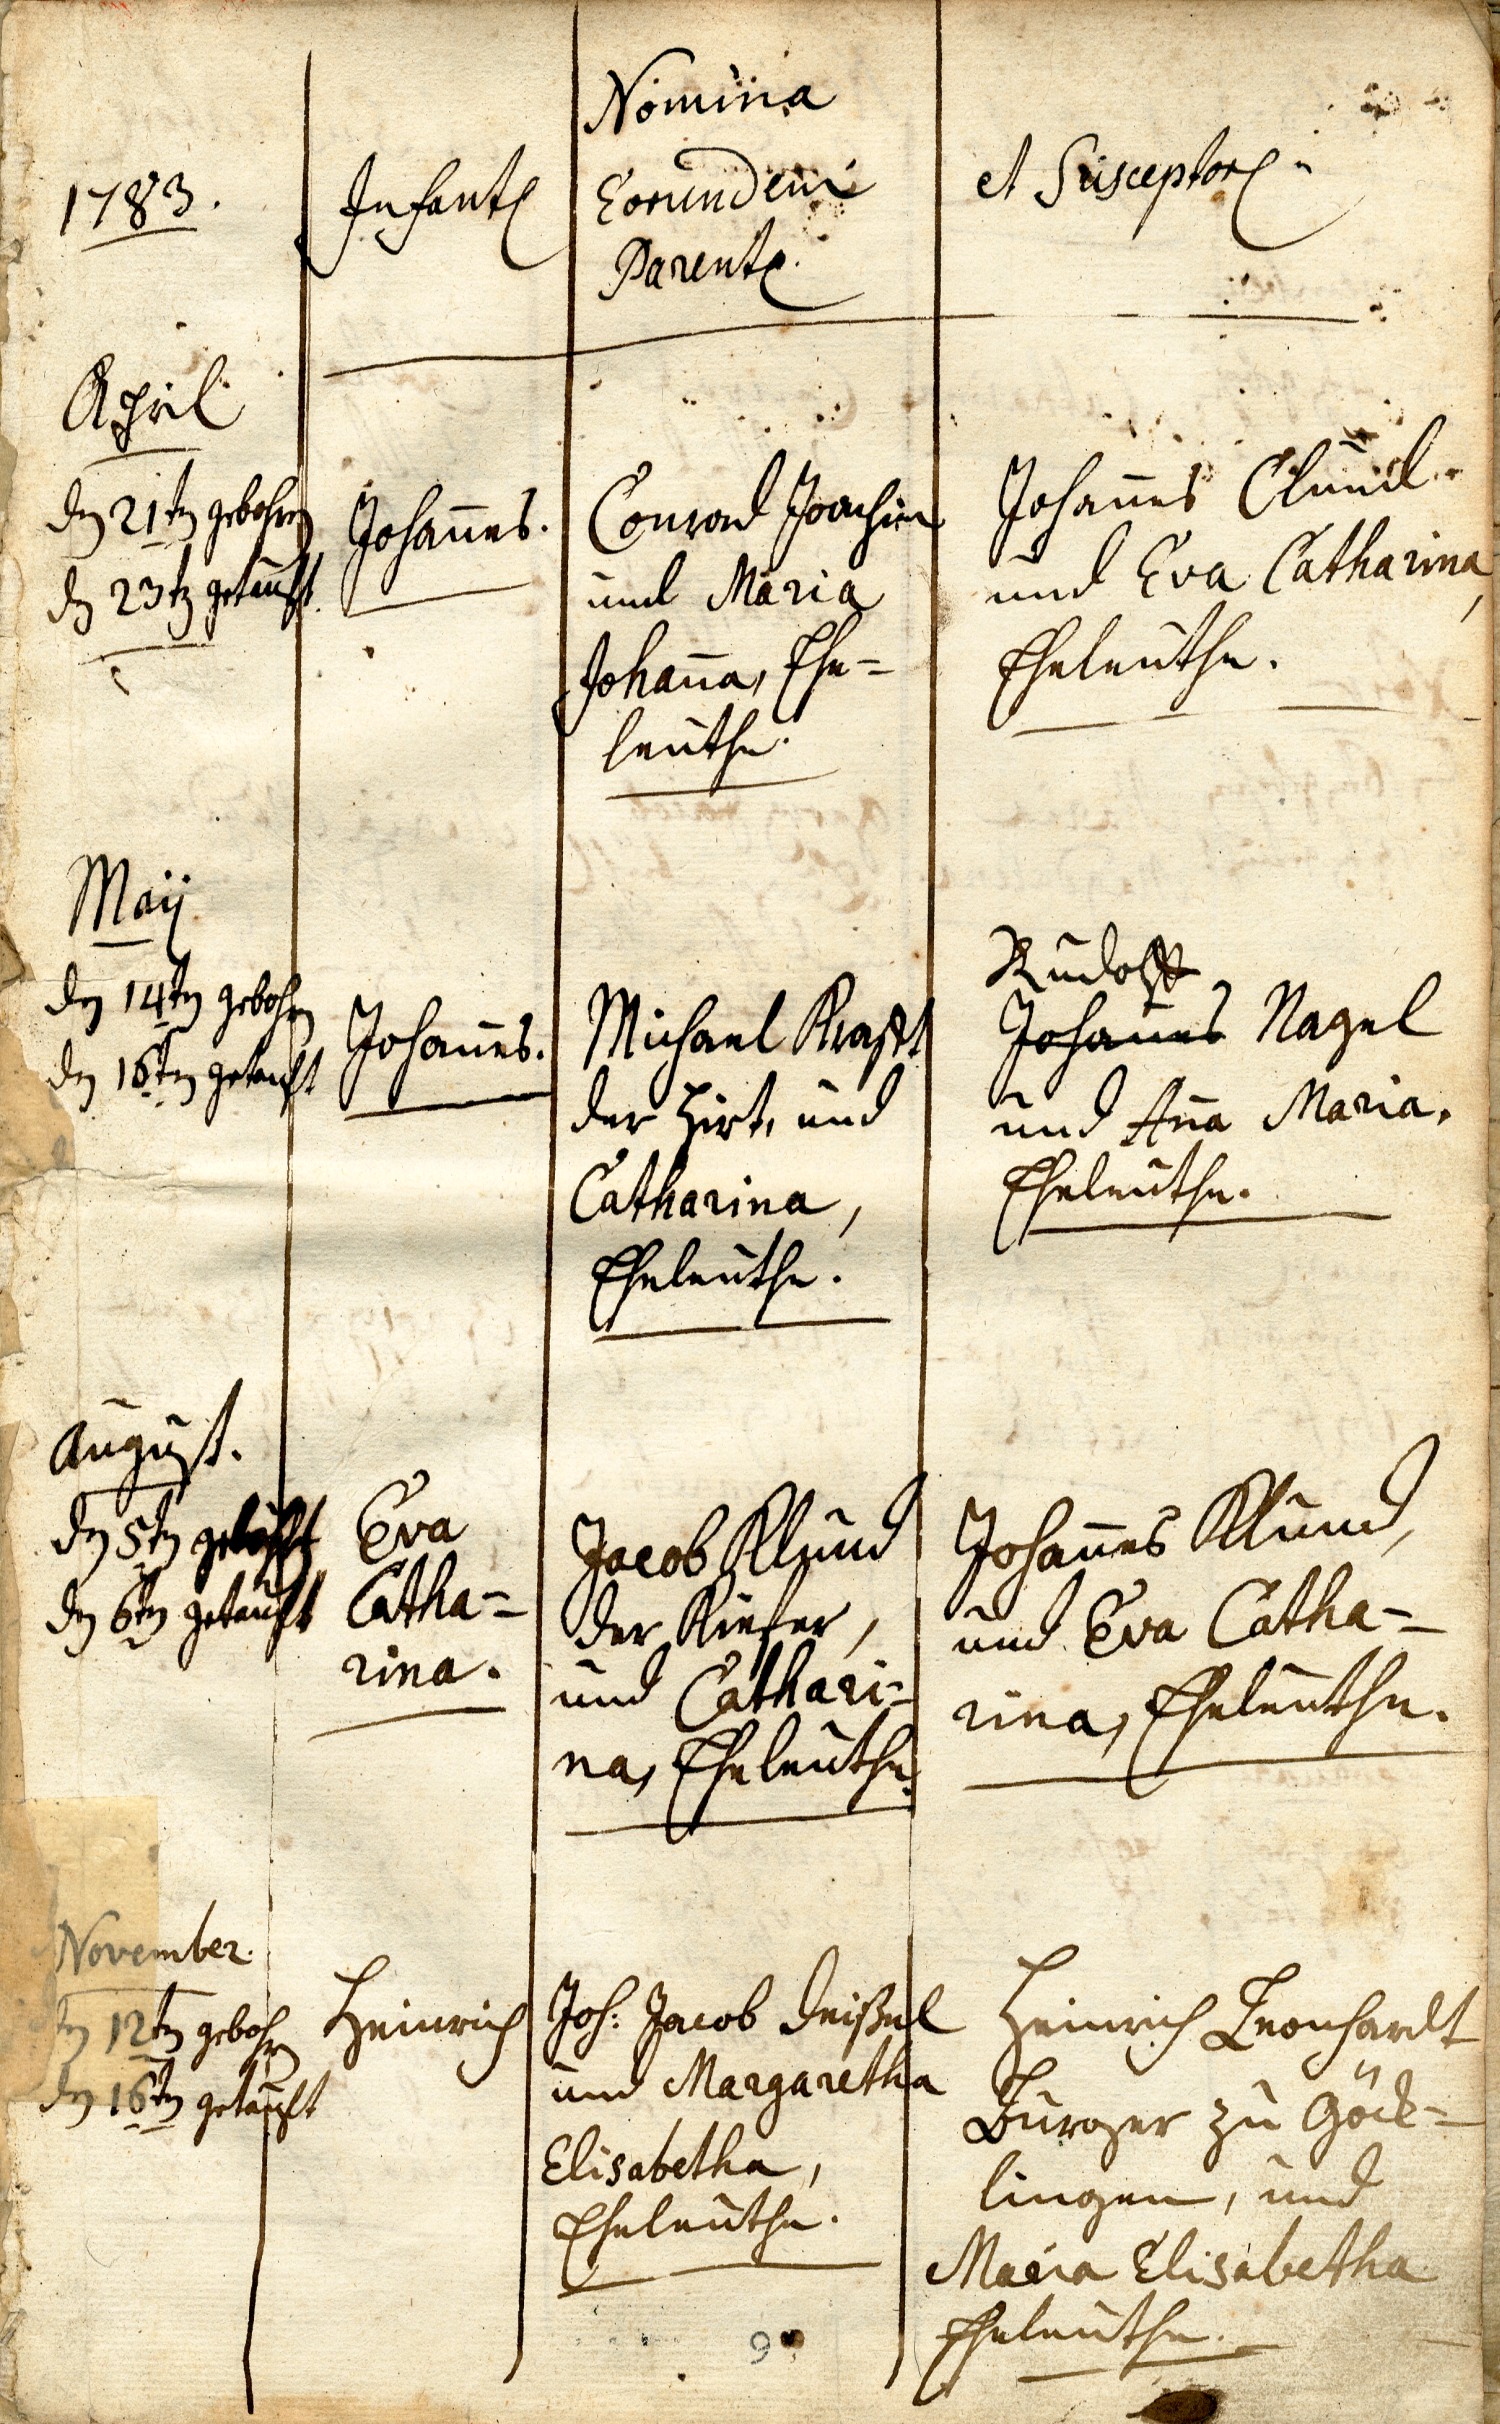 Nomina
1783.
Infant
Eorundem
Parent
et Susceptor
April
den 21ten gebohren
den 23ten getauft.
Johannes.
Conrad Joachim
und Maria
Johanna, Ehe=
leuthe.
Johannes Clund
und Eva Catharina,
Eheleuthe.
Maij
den 14ten gebohren
den 16ten getauft
Johannes.
Michael Krafft
der Hirt, und
Catharina,
Eheleuthe.
Rudolff
Johannes Nagel
und Anna Maria,
Eheleuthe.
August.
den 5ten
den 6ten getauft
Eva
Catha=
rina.
Jacob Klund
der Kiefer,
und Cathari=
na, Eheleuthe.
Johannes Klund,
und Eva Catha=
rina, Eheleuthe.
November.
den 12ten gebohren
den 16ten getauft
Heinrich
Joh: Jacob Deißel
und Margaretha
Elisabetha,
Eheleuthe.
Heinrich Leonhardt
Burger zu Göck=
lingen, und
Maria Elisabetha
Eheleuthe.
9